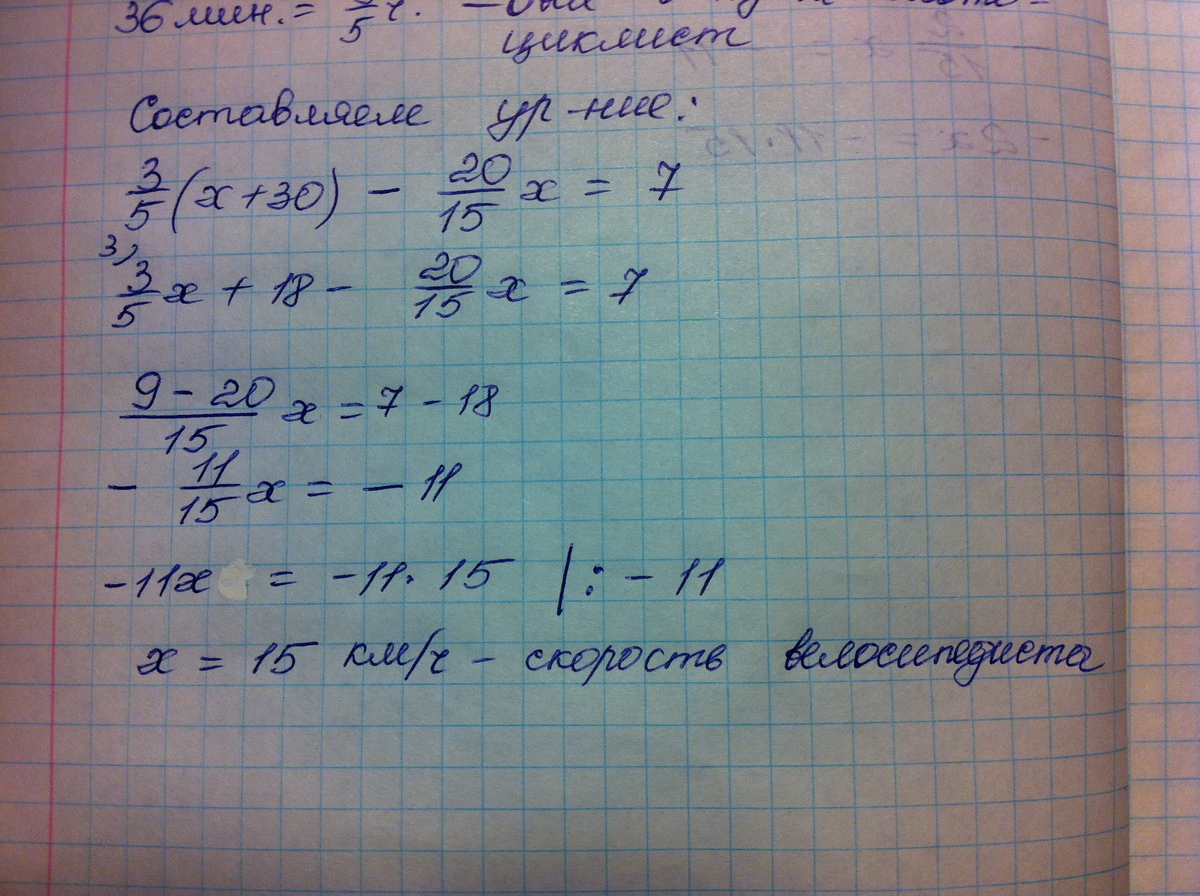 36 мин. = 3/5 ч. — был
циклист
Составляем ур-ние:
3/5 (x + 30) - 20/15 x = 7
3)
3/5 x + 18 - 20/15 x = 7
9 - 20/15 x = 7 - 18
- 11/15 x = - 11
-11x = -11 · 15 | : - 11
x = 15 км/ч - скорость велосипедиста